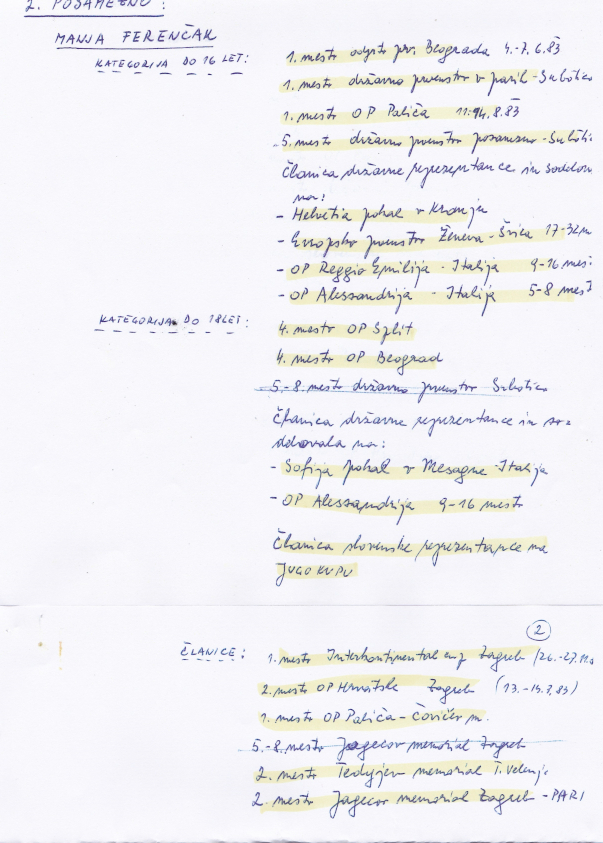 2. POSAMEZNO:
MANJA FERENČAK
KATEGORIJA DO 16 LET:
1. mesto odprto prv. Beograda 4.-7.6.83
1. mesto državno prvenstvo v parih - Subotica
1. mesto OP Palića 11.-14.8.83
5. mesto državno prvenstvo posamezno - Subotic
Članica državne reprezentance in sodelov
na:
- Helvetia pokal v Kranju
- Evropsko prvenstvo Ženeva - Švica 17-32 m
- OP Reggio Emilija - Italija 9-16 mest
- OP Alessandrija - Italija 5-8 mest
KATEGORIJA DO 18 LET:
4. mesto OP Split
4. mesto OP Beograd
5.-8. mesto državno prvenstvo Subotica
Članica državne reprezentance in so=
delovala na:
- Sofija pokal v Mesagne - Italija
- OP Alessandrija 9-16 mesto
Članica slovenske reprezentance na
JUGO KUPU
2
ČLANICE:
1. mesto Interkontinental cup Zagreb /26.-27.11.
2. mesto OP Hrvatske Zagreb (13.-15.3.83)
1. mesto OP Palića - Čovičev m.
5.-8. mesto Jagecov memorial Zagreb
2. mesto Tedyjev memorial T. Velenje
2. mesto Jagecov memorial Zagreb - PARI